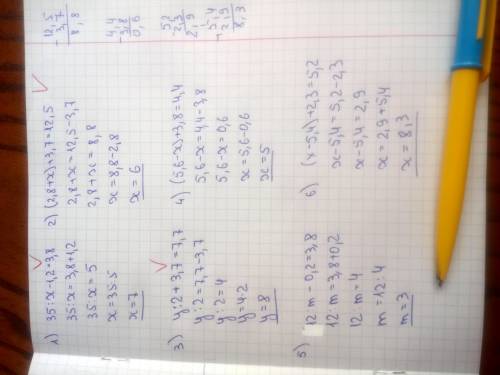 1) 35:x-1,2=3,8
35:x=3,8+1,2
35:x=5
x=35:5
x=7
2) (2,8+x)+3,7=12,5
2,8+x=12,5-3,7
2,8+x=8,8
x=8,8-2,8
x=6
12,5
- 3,7
8,8
3) y:2+3,7=7,7
y:2=7,7-3,7
y:2=4
y=4·2
y=8
4) (5,6-x)+3,8=4,4
5,6-x=4,4-3,8
5,6-x=0,6
x=5,6-0,6
x=5
4,4
- 3,8
0,6
5) 12:m-0,2=3,8
12:m=3,8+0,2
12:m=4
m=12:4
m=3
6) (x-5,4)+2,3=5,2
x-5,4=5,2-2,3
x-5,4=2,9
x=2,9+5,4
x=8,3
5,2
- 2,3
2,9
5,4
+ 2,9
8,3